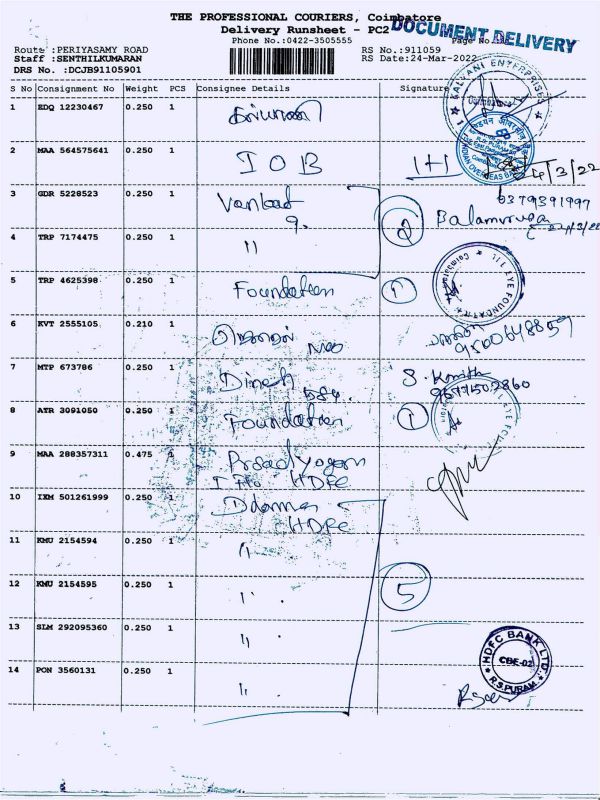 THE PROFESSIONAL COURIERS, Coimbatore
Delivery Runsheet - PC2
DOCUMENT DELIVERY
Phone No.:0422-3505555
Page No.
Route :PERIYASAMY ROAD
RS No.:911059
Staff :SENTHILKUMARAN
RS Date:24-Mar-2022
DRS No. :DCJB91105901
S No Consignment No Weight PCS Consignee Details Signature
KALYANI ENTERPRISES
Coimbatore
1 EDQ 12230467 0.250 1
2 MAA 564575641 0.250 1 IOB 1+1
INDIAN OVERSEAS BANK
24/3/22
3 GDR 5228523 0.250 1 Vankat 9.
6379391997
2 Balamurugan
24/3/22
4 TRP 7174475 0.250 1 "
5 TRP 4625398 0.250 1 Foundation 1
EYE FOUNDATION
6 KVT 2555105 0.210 1
9500648859
7 MTP 673786 0.250 1 Dinesh
9677502860
8 ATR 3091050 0.250 1 Foundation 1
EYE FOUN
9 MAA 288357311 0.475 1 Prasad Yogam
HDFC
10 IXM 501261999 0.250 1
HDFC
11 KMU 2154594 0.250 1 "
12 KMU 2154595 0.250 1 " 5
13 SLM 292095360 0.250 1 "
HDFC BANK LTD.
CBE-02
R.S.PURAM
14 PON 3560131 0.250 1 "